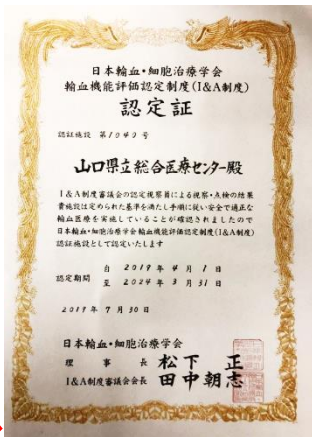 日本輸血・細胞治療学会
輸血機能評価認定制度(I&A制度)
認定証
認証施設 第1040号
山口県立総合医療センター殿
I&A制度審議会の認定視察員による視察・点検の結果
貴施設は定められた基準を満たし手順に従い安全で適正な
輸血医療を実施していることが確認されましたので
日本輸血・細胞治療学会輸血機能評価認定制度(I&A制度)
認証施設として認定いたします
認定期間
自 2019年 4月 1日
至 2024年 3月 31日
2019年 7月30日
日本輸血・細胞治療学会
理事長 松下 正
I&A制度審議会会長 田中朝志